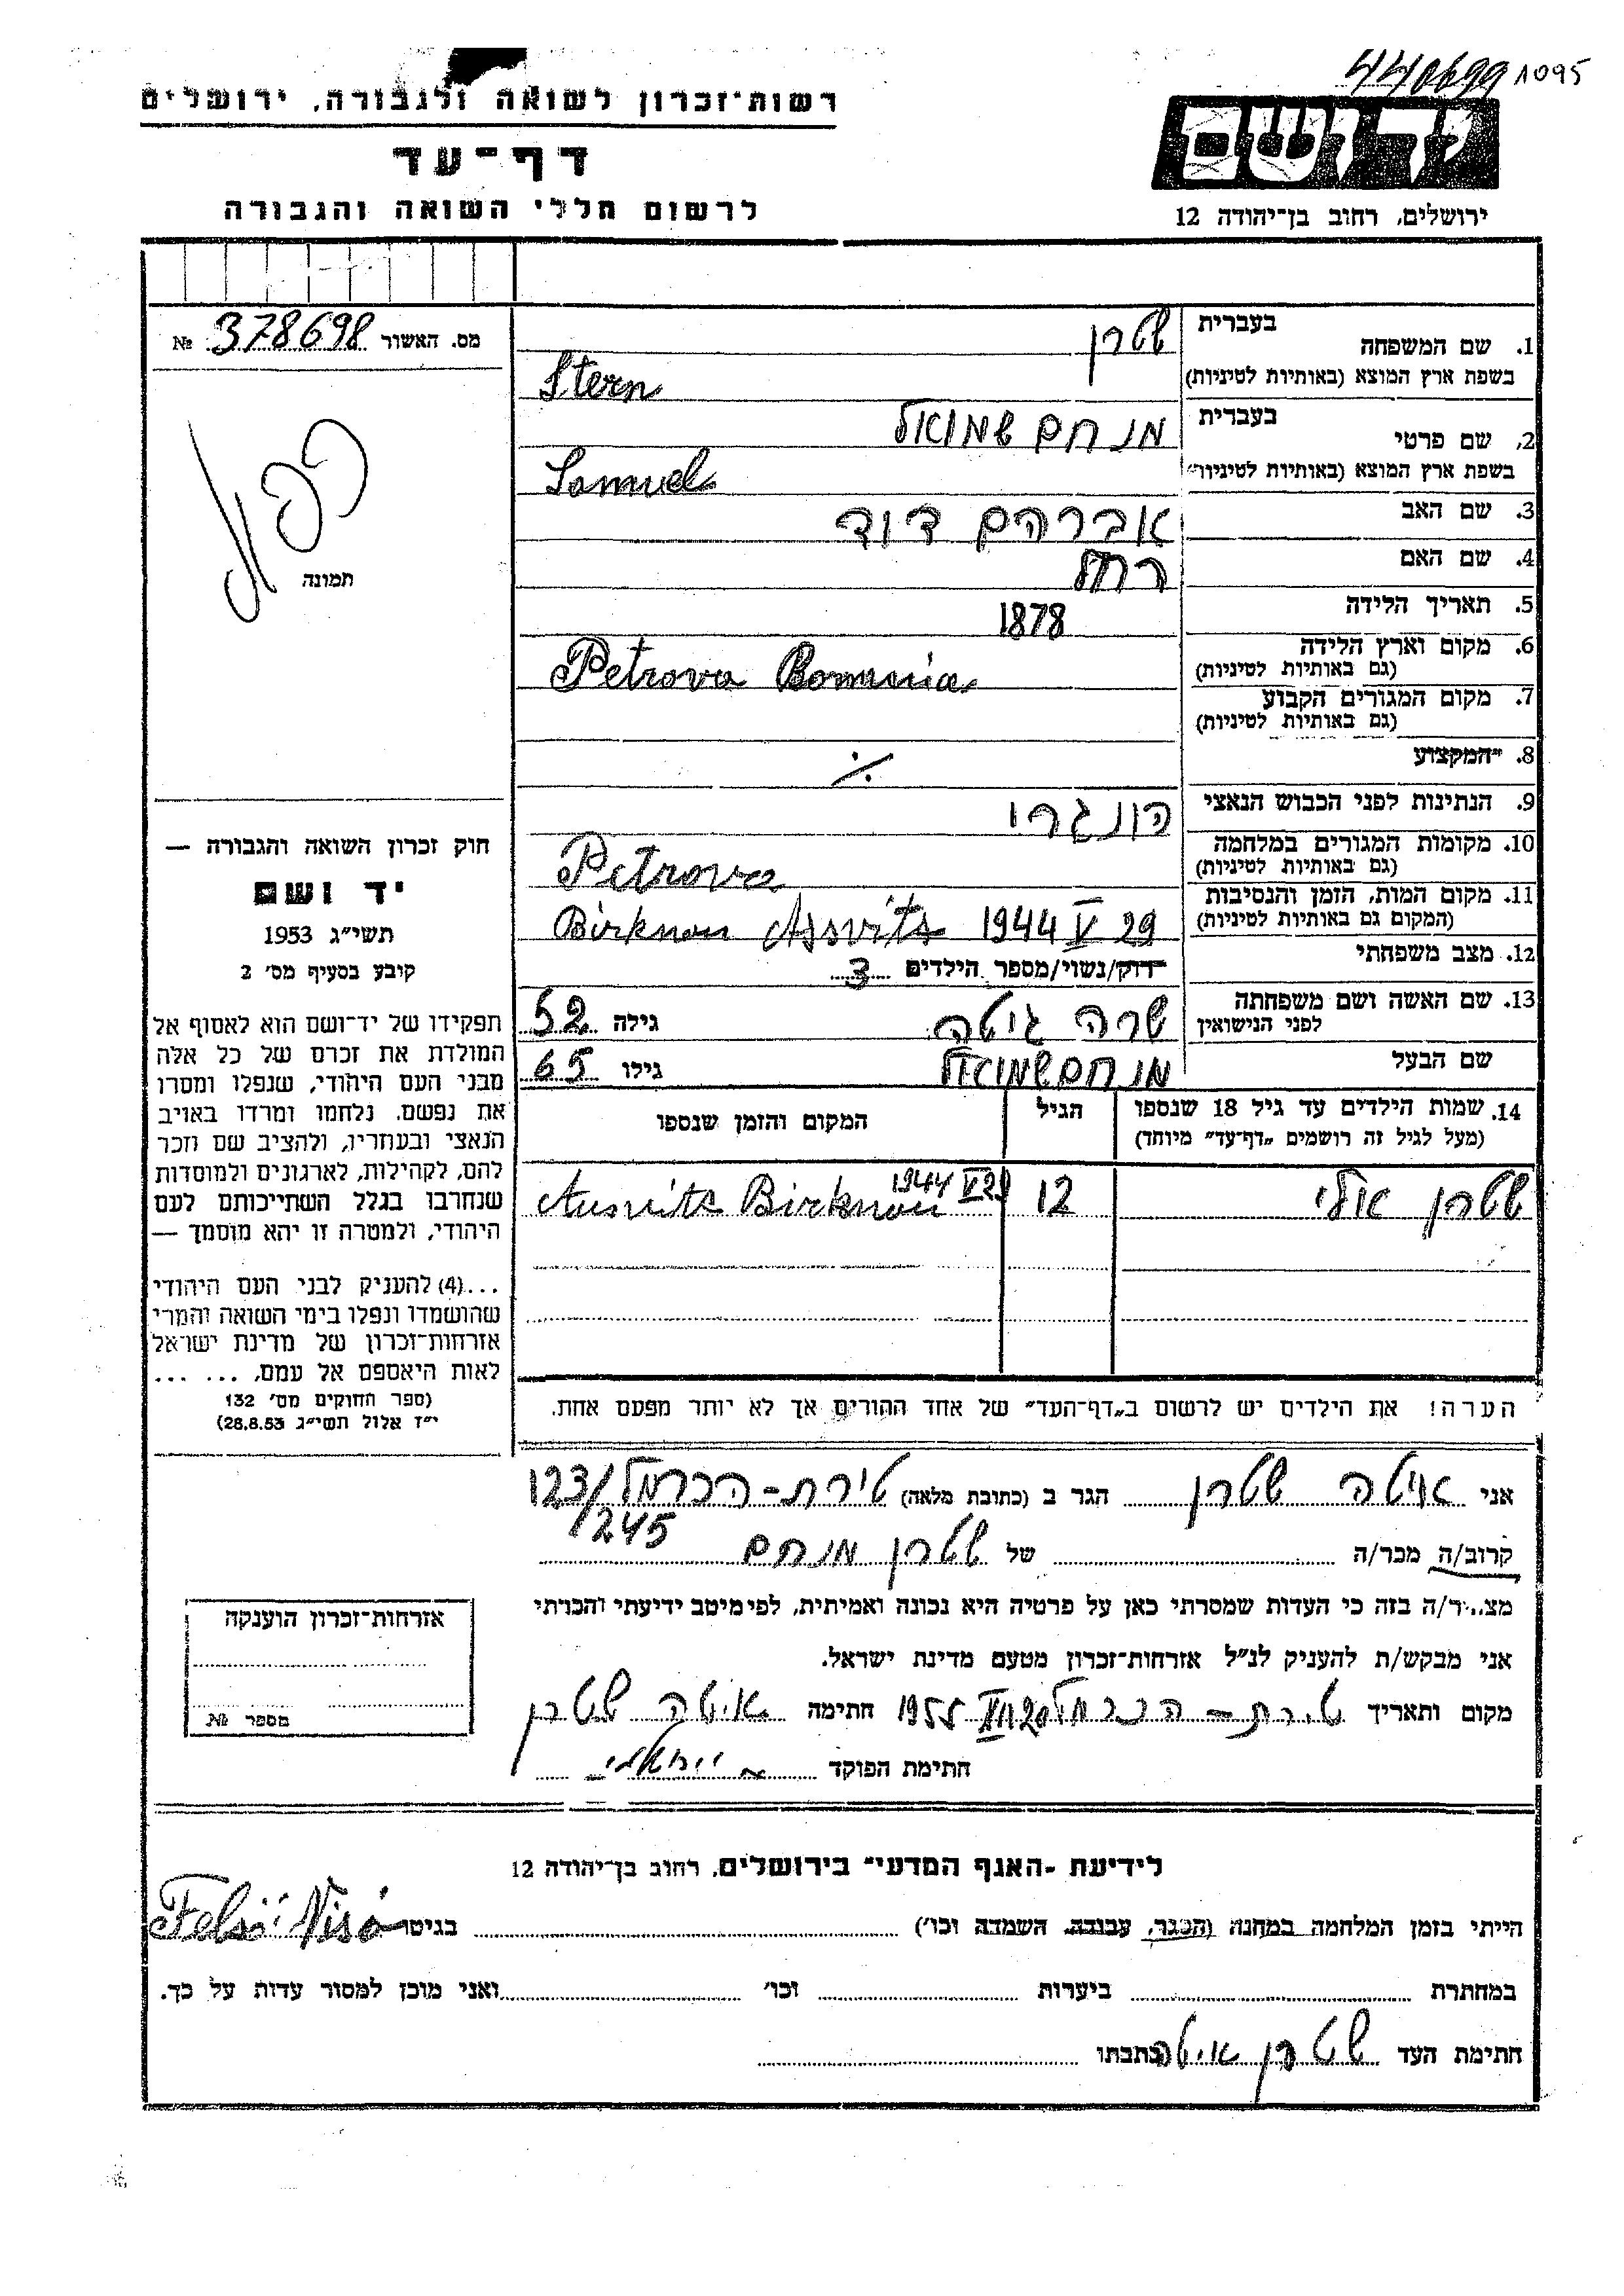 440699 1095
רשות־זכרון לשואה ולגבורה, ירושלים
דף־עד
לרשום חללי השואה והגבורה
יד ושם
ירושלים, רחוב בן־יהודה 12
מס. האשור 378698 №
תמונה
חוק זכרון השואה והגבורה —
יד ושם
תשי״ג 1953
קובע בסעיף מס׳ 2
תפקידו של יד־ושם הוא לאסוף אל
המולדת את זכרם של כל אלה
מבני העם היהודי, שנפלו ומסרו
את נפשם, נלחמו ומרדו באויב
הנאצי ובעוזריו, ולהציב שם וזכר
להם, לקהילות, לארגונים ולמוסדות
שנחרבו בגלל השתייכותם לעם
היהודי, ולמטרה זו יהא מוסמך —
...(4) להעניק לבני העם היהודי
שהושמדו ונפלו בימי השואה והמרי
אזרחות־זכרון של מדינת ישראל
לאות היאספם אל עמם, ... ...
(ספר החוקים מס׳ 132
י״ז אלול תשי״ג 28.8.53)
1. שם המשפחה בעברית שטרן
בשפת ארץ המוצא (באותיות לטיניות) Stern
2. שם פרטי בעברית מנחם שמואל
בשפת ארץ המוצא (באותיות לטיניות) Samuel
3. שם האב אברהם דוד
4. שם האם רחל
5. תאריך הלידה 1878
6. מקום וארץ הלידה
(גם באותיות לטיניות) Petrova Romunia
7. מקום המגורים הקבוע
(גם באותיות לטיניות)
8. המקצוע ·/·
9. הנתינות לפני הכבוש הנאצי הונגרי
10. מקומות המגורים במלחמה
(גם באותיות לטיניות) Petrova
11. מקום המות, הזמן והנסיבות
(המקום גם באותיות לטיניות) Birknau Assvits 1944 V 29
12. מצב משפחתי רווק/נשוי/מספר הילדים 3
13. שם האשה ושם משפחתה
לפני הנישואין שרה גיטה גילה 52
שם הבעל מנחם שמואל גילו 65
14. שמות הילדים עד גיל 18 שנספו הגיל המקום והזמן שנספו
(מעל לגיל זה רושמים „דף־עד״ מיוחד)
שטרן אלי 12 Ausvits Birknau 1944 V 29
הערה! את הילדים יש לרשום ב„דף־העד״ של אחד ההורים אך לא יותר מפעם אחת.
אני איטה שטרן הגר ב (כתובת מלאה) טירת-הכרמל 123/
/245
קרוב/ה מכר/ה של שטרן מנחם
מצ...ר/ה בזה כי העדות שמסרתי כאן על פרטיה היא נכונה ואמיתית, לפי מיטב ידיעתי והכרתי
אני מבקש/ת להעניק לנ״ל אזרחות־זכרון מטעם מדינת ישראל.
מקום ותאריך טירת-הכרמל 20 1955 חתימה איטה שטרן
חתימת הפוקד
אזרחות־זכרון הוענקה
מספר №
לידיעת -האגף המדעי״ בירושלים, רחוב בן־יהודה 12
הייתי בזמן המלחמה במחנה (הסגר, עבודה, השמדה וכו׳) בגיטו Felső Visó
במחתרת ביערות וכו׳ ואני מוכן למסור עדות על כך.
חתימת העד שטרן איטה כתבתו